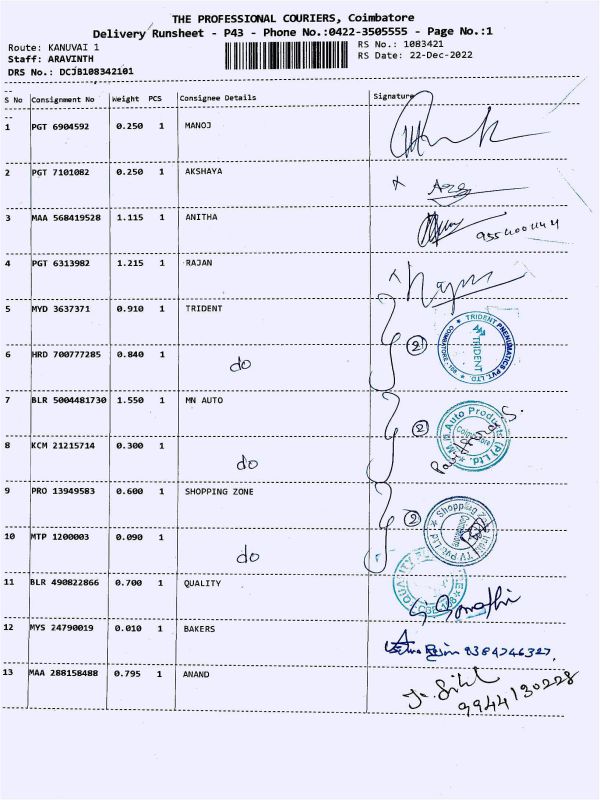 THE PROFESSIONAL COURIERS, Coimbatore
Delivery Runsheet - P43 - Phone No.:0422-3505555 - Page No.:1
Route: KANUVAI 1
Staff: ARAVINTH
DRS No.: DCJB108342101
RS No.: 1083421
RS Date: 22-Dec-2022
S No Consignment No Weight PCS Consignee Details Signature
1 PGT 6904592 0.250 1 MANOJ
2 PGT 7101082 0.250 1 AKSHAYA
3 MAA 568419528 1.115 1 ANITHA
4 PGT 6313982 1.215 1 RAJAN
5 MYD 3637371 0.910 1 TRIDENT
TRIDENT PNEUMATICS PVT. LTD.
TRIDENT
6 HRD 700777285 0.840 1 do
2
7 BLR 5004481730 1.550 1 MN AUTO
2
Auto Products (P) Ltd.
Coimbatore
8 KCM 21215714 0.300 1 do
9 PRO 13949583 0.600 1 SHOPPING ZONE
2
Shopping Zone India TV Pvt. Ltd
Coimbatore
10 MTP 1200003 0.090 1 do
11 BLR 490822866 0.700 1 QUALITY
QUALITY
12 MYS 24790019 0.010 1 BAKERS
13 MAA 288158488 0.795 1 ANAND
9944130228